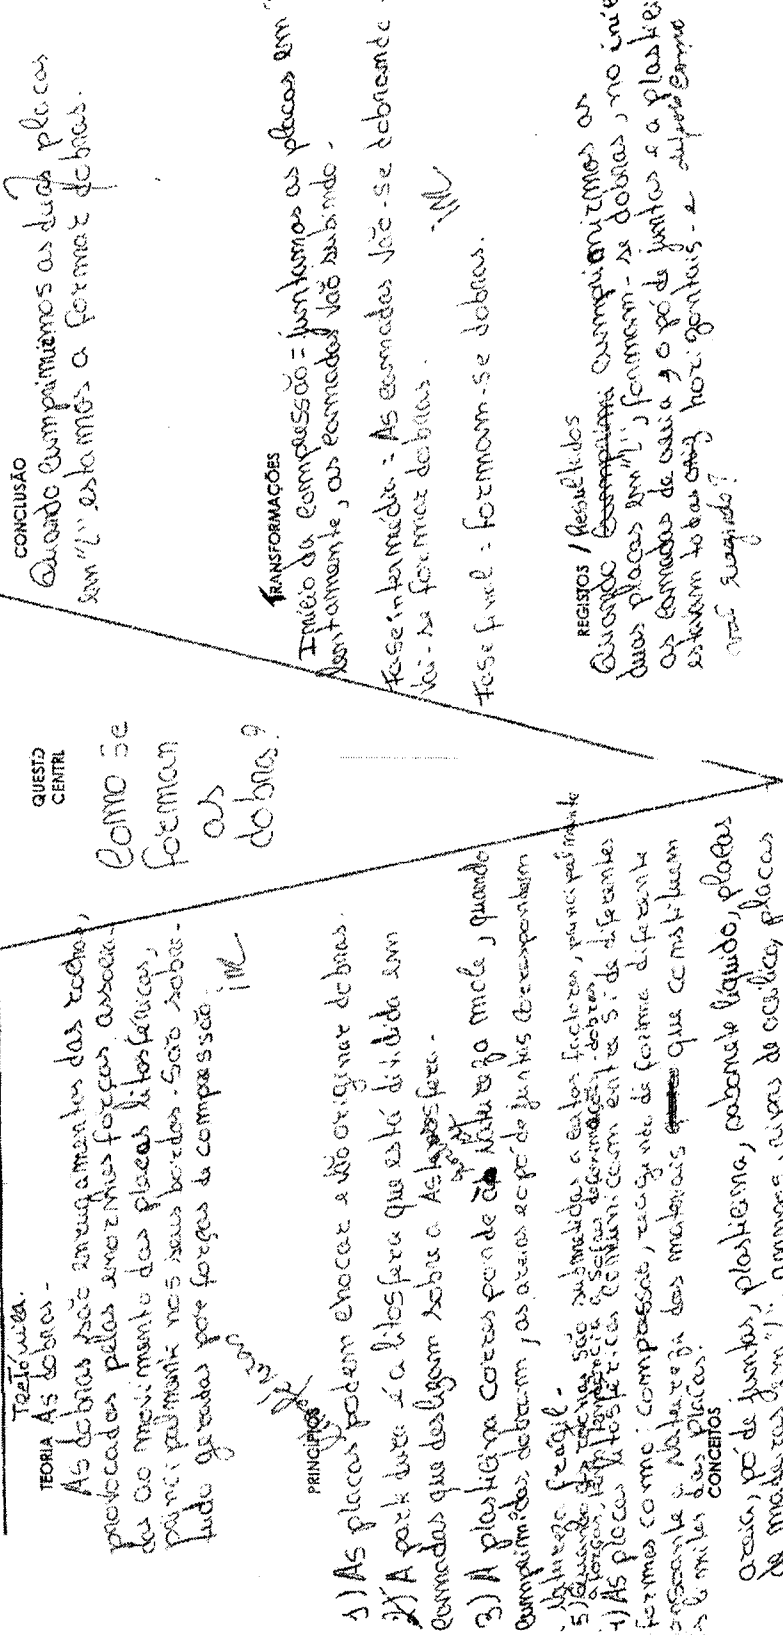 Tectónica.
TEORIA As dobras -
As dobras são enrugamentos das rochas,
provocados pelas enormes forças associa-
das ao movimento das placas litosféricas,
principalmente nos seus bordos. São sobre-
tudo geradas por forças de compressão.
PRINCÍPIOS
1) As placas podem chocar e vão originar dobras.
2) A parte dura é a litosfera que está dividida em
camadas que deslizam sobre a Astenosfera.
3) A plasticina corresponde à natureza mole, quando
cumprimidas dobram, as areias e o pó de juntas correspondem
natureza frágil -
5) Quando as rochas são submetidas a certos factores, principalmente
a forças, temperatura, sofrem deformação, dobras
4) As placas litosféricas comunicam entre si de diferentes
formas como: compressão, reagindo de forma diferente
consoante a natureza dos materiais que constituem
os limites das placas.
CONCEITOS
areia, pó de juntas, plasticina, sabonete líquido, placas
de madeiras em "L", placas
QUESTO
CENTRL
Como se
formam
as
dobras?
CONCLUSÃO
Quando cumprimimos as duas placas
em "L" estamos a formar dobras.
TRANSFORMAÇÕES
Início da compressão = juntamos as placas em
lentamente, as camadas vão subindo -
Fase intermédia = As camadas vão-se dobrando
vai-se formar dobras.
Fase final = formam-se dobras.
REGISTOS / Resultados
Quando cumprimirmos as
duas placas em "L", formam-se dobras, no iníc
as camadas de areia, o pó de juntas e a plastici
estavam todas horizontais - e depois como
vai reagindo?